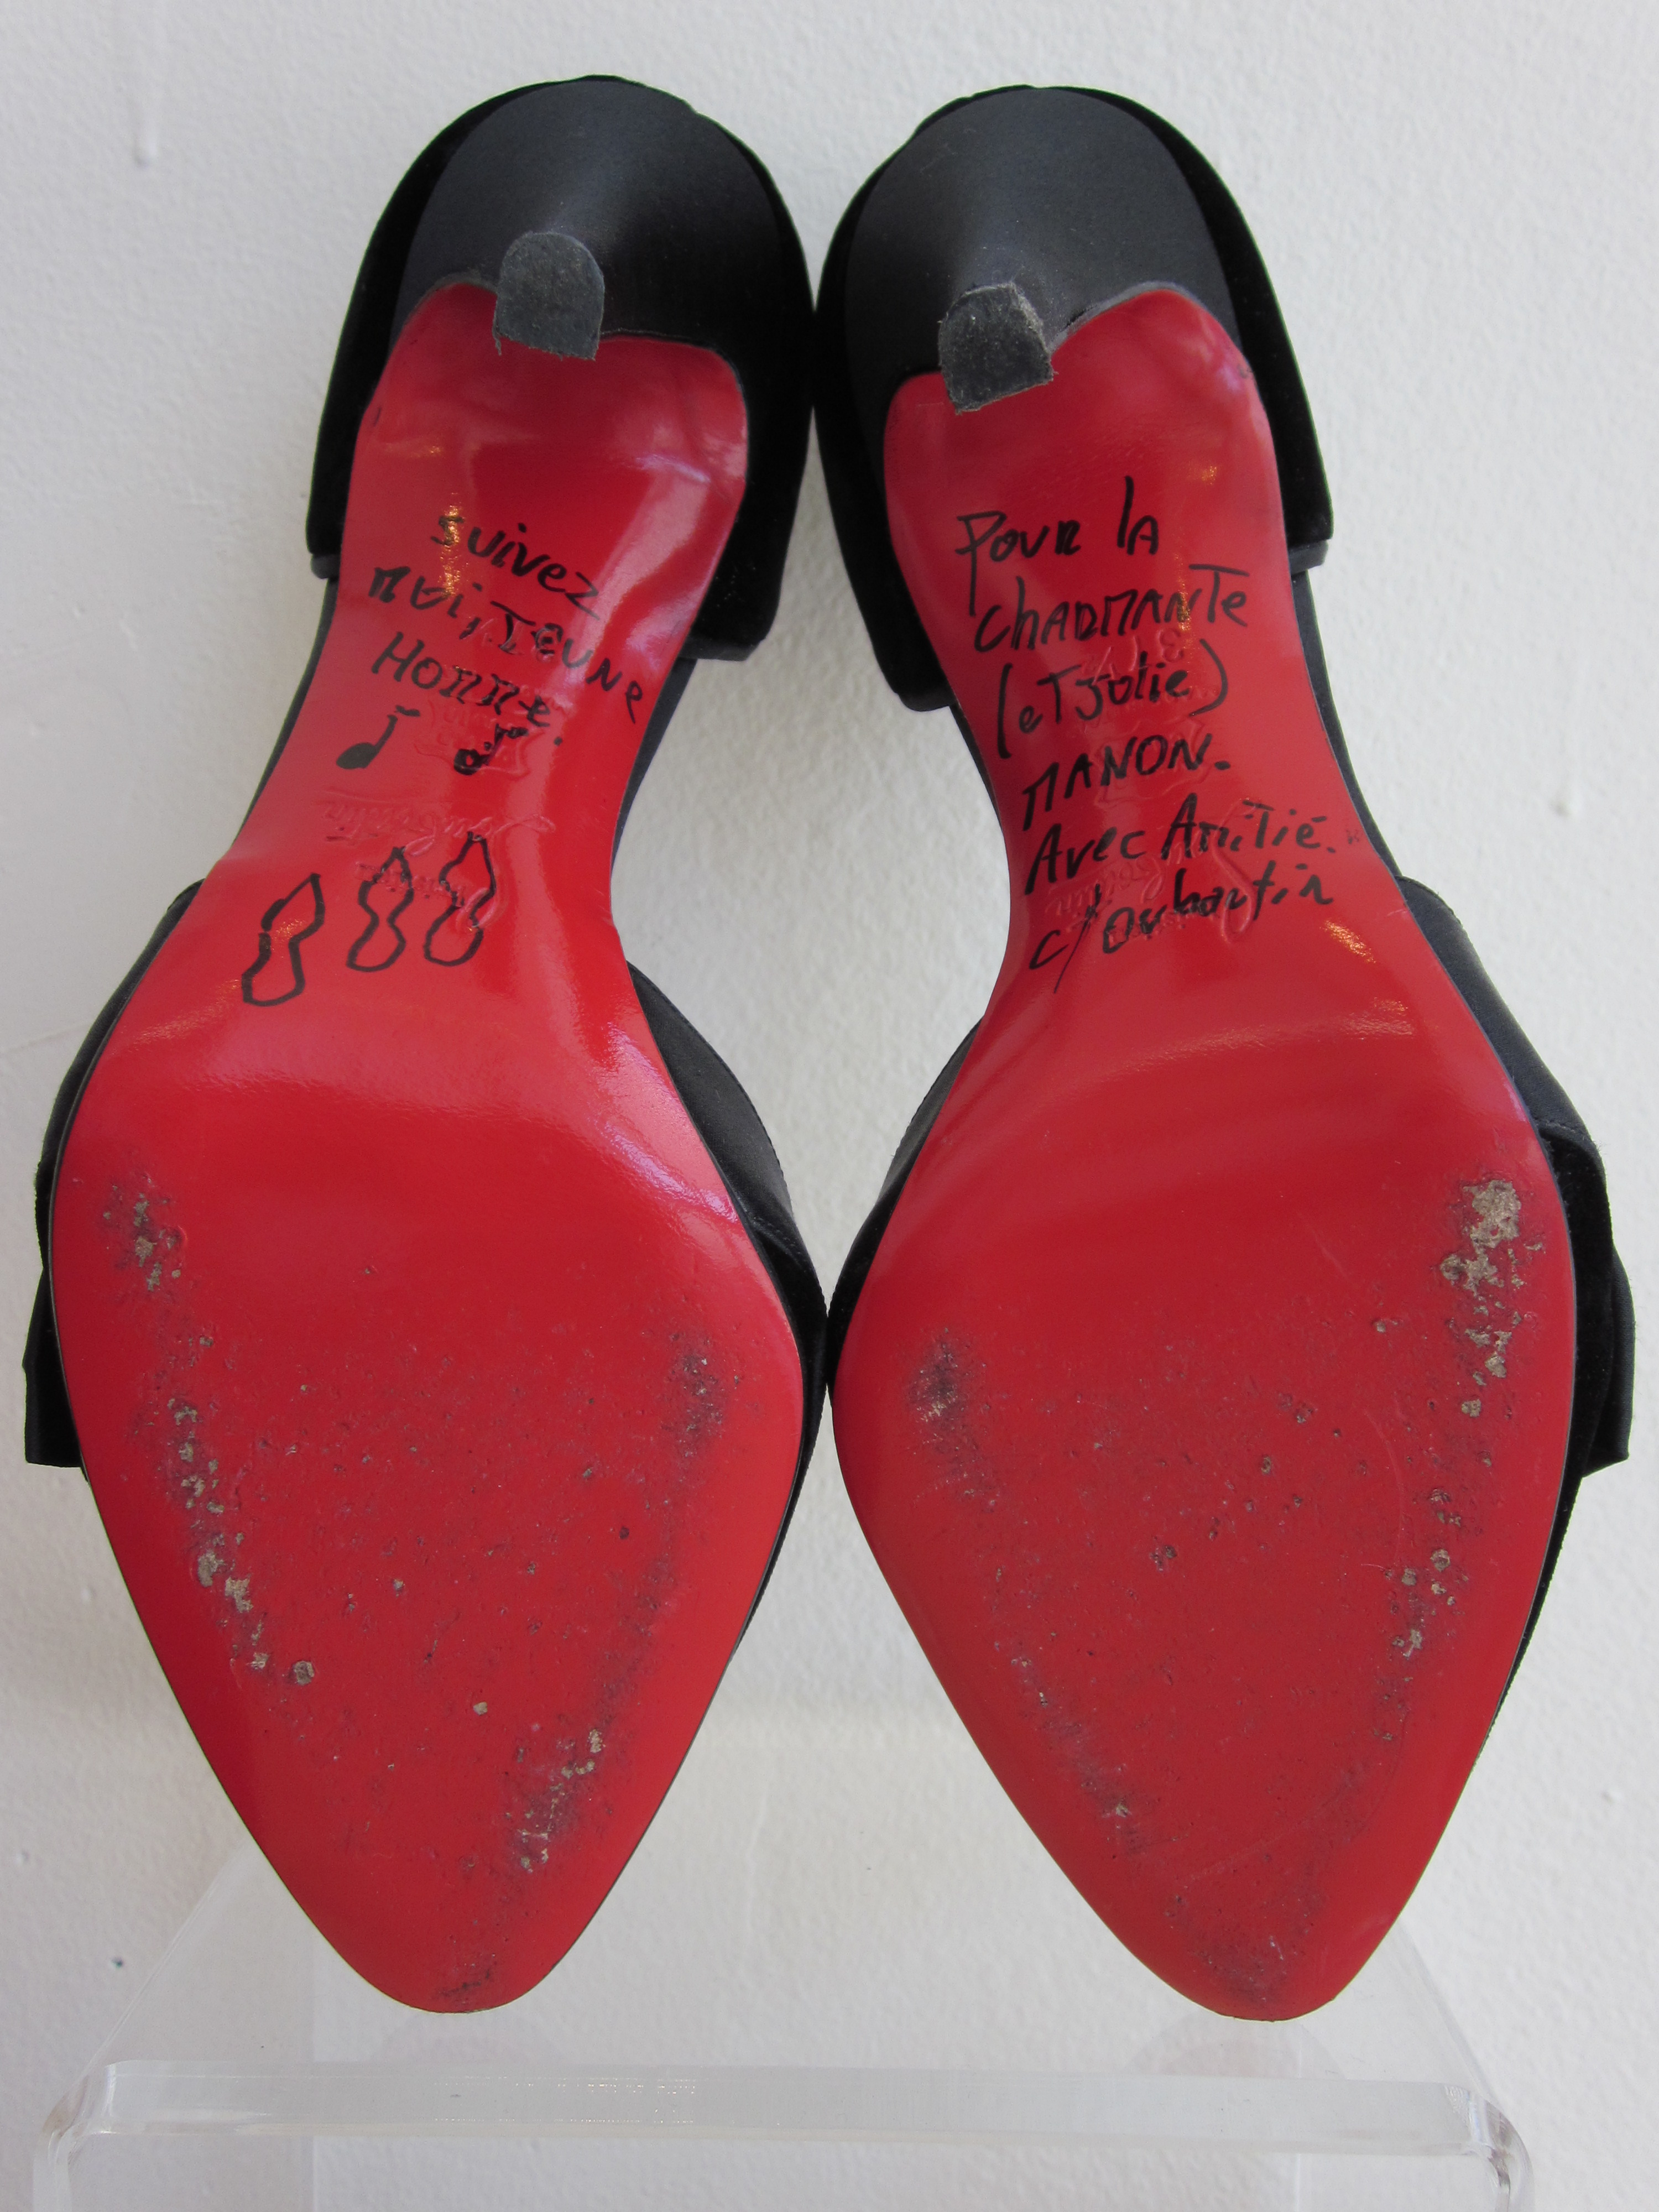 suivez
moi, Jeune
Homme.
Pour la
Charmante
(et Jolie)
Manon.
Avec Amitié.
C Louboutin